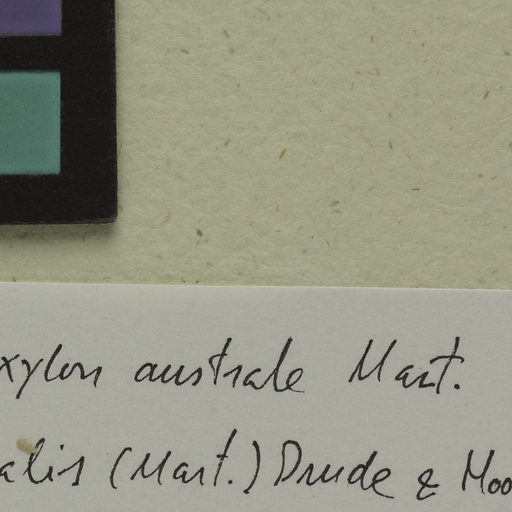 xylon australe Mart.
alis (Mart.) Drude & Moo